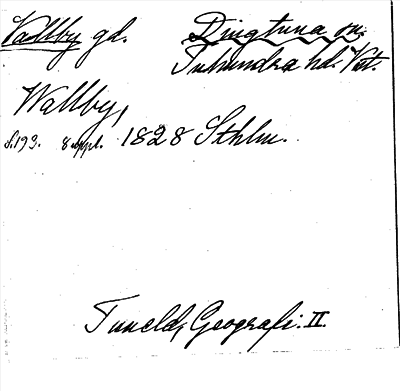 Vallby gd. Dingtuna sn.
Tuhundra hd. Vstm.
Wallby,
s. 193. 8 uppl. 1828 Sthlm.
Tuneld, Geografi. II.